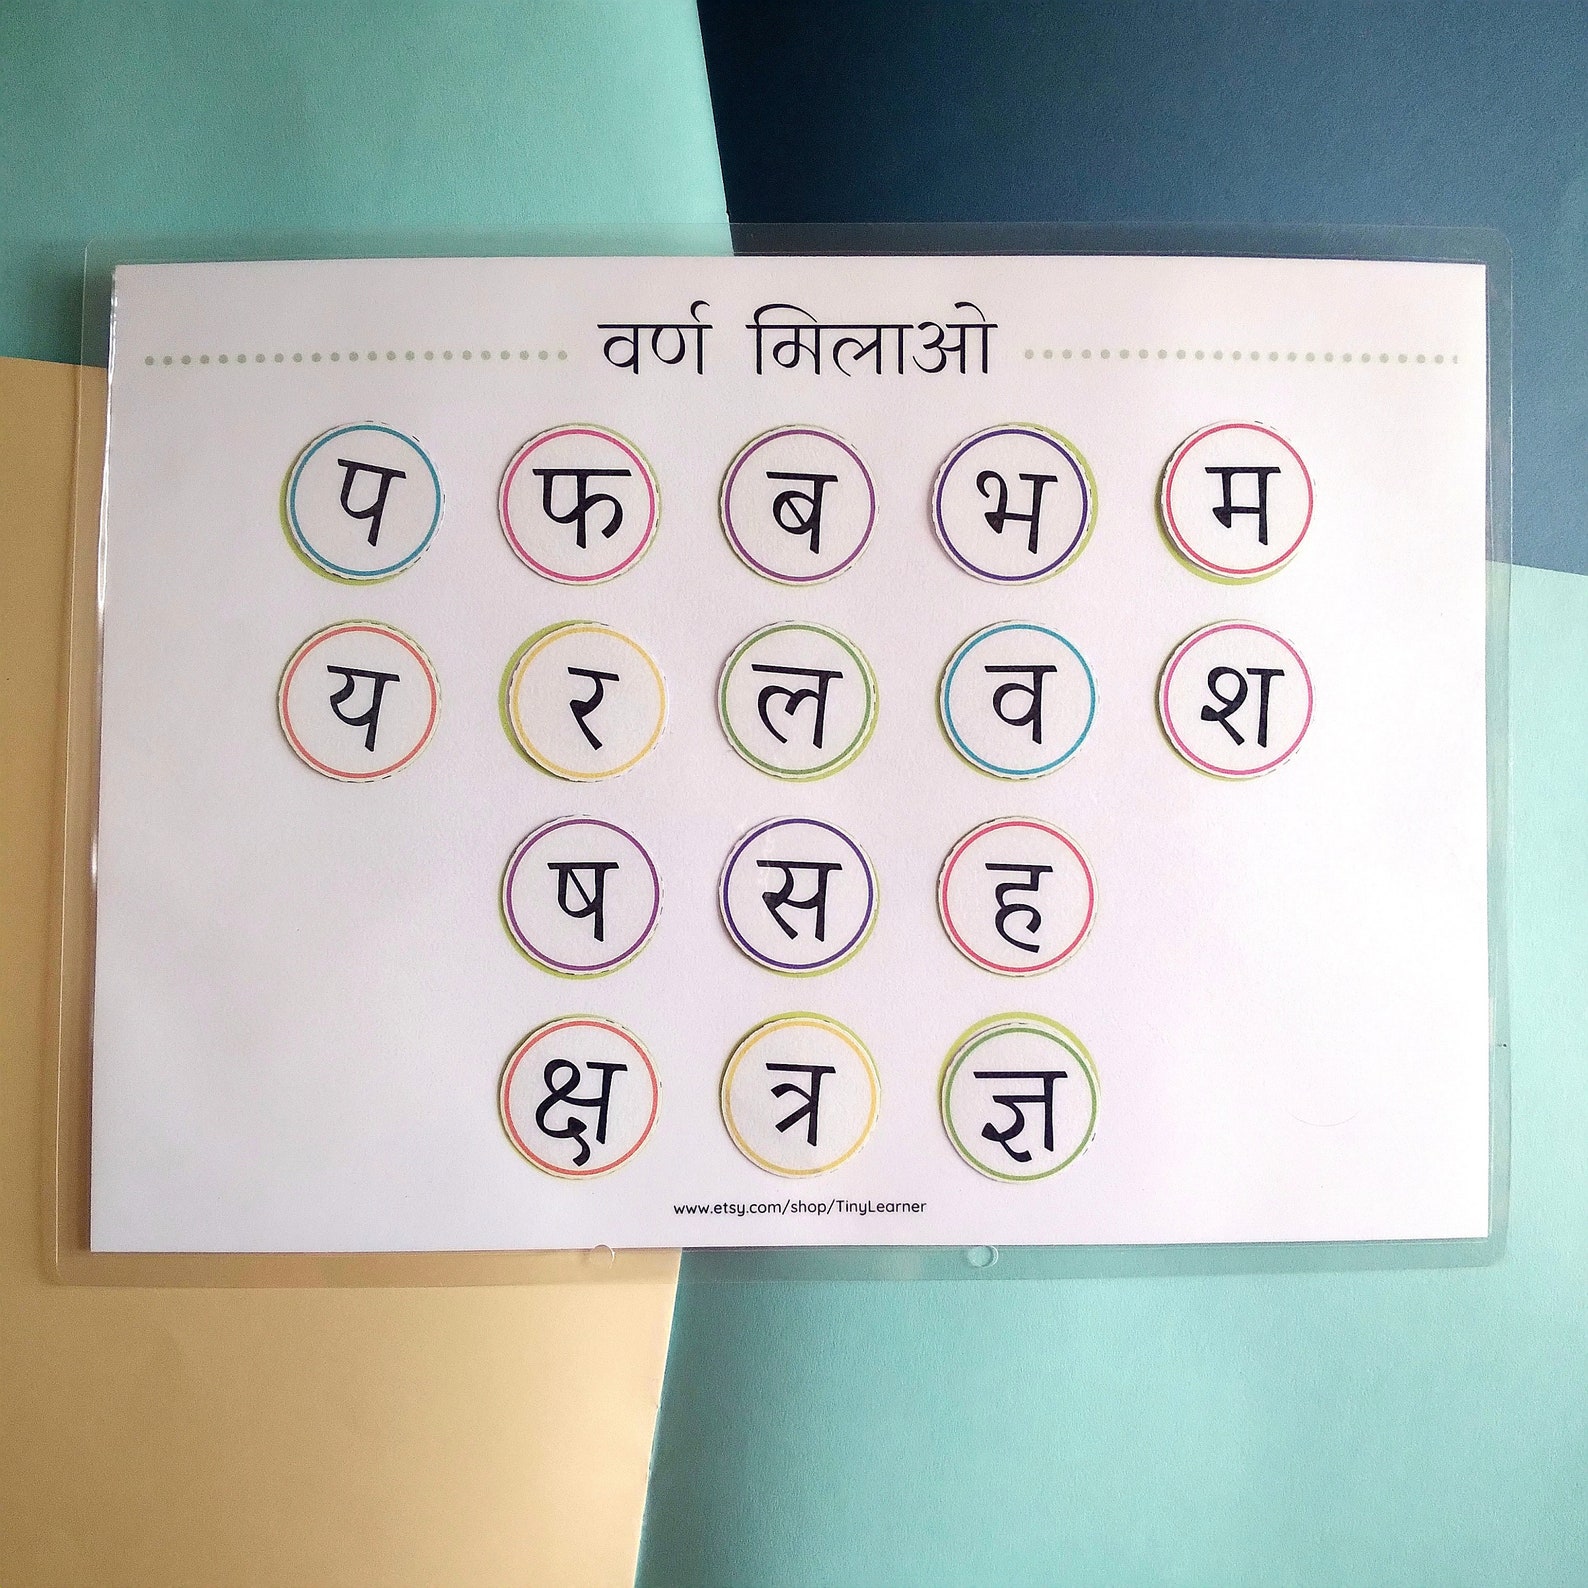 वर्ण मिलाओ
प फ ब भ म
य र ल व श
ष स ह
क्ष त्र ज्ञ
www.etsy.com/shop/TinyLearner